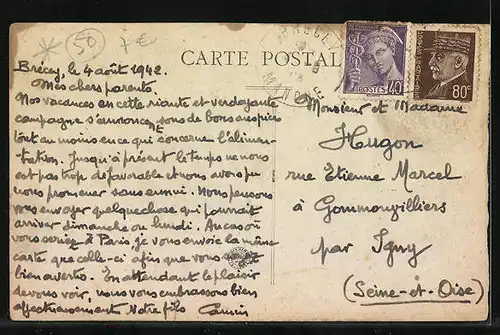 50
7€
CARTE POSTALE
POSTES
40
80c
Brécey, le 4 août 1942.
Mes chers parents.
Nos vacances en cette riante et verdoyante
campagne s'annoncent sous de bons auspices
tout au moins en ce qui concerne l'alimen-
tation. Jusqu'à présent le temps ne nous
est pas trop défavorable et nous avons pu
nous promener sans ennui. Nous pensons
vous envoyer quelque chose qui pourrait
arriver dimanche ou lundi. Au cas où
vous seriez à Paris, je vous envoie la même
carte que celle-ci afin que vous
bien avertis. En attendant le plaisir
de vous voir, nous vous embrassons bien
affectueusement Votre fils
Monsieur et Madame
Hugon
rue Etienne Marcel
à Gommonvilliers
par Igny
(Seine-et-Oise)